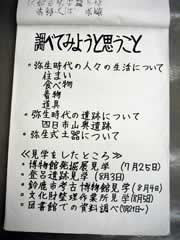 調べてみようと思うこと
・弥生時代の人々の生活について
住まい
食べ物
着物
道具
・弥生時代の遺跡について
四日市山奥遺跡
・弥生式土器について
≪見学をしたところ≫
・博物館発掘展見学 (7月25日)
・登呂遺跡見学 (8月3日)
・鈴鹿市考古博物館見学(8月4日)
・文化財整理作業所見学(8月5日)
・図書館での資料調べ